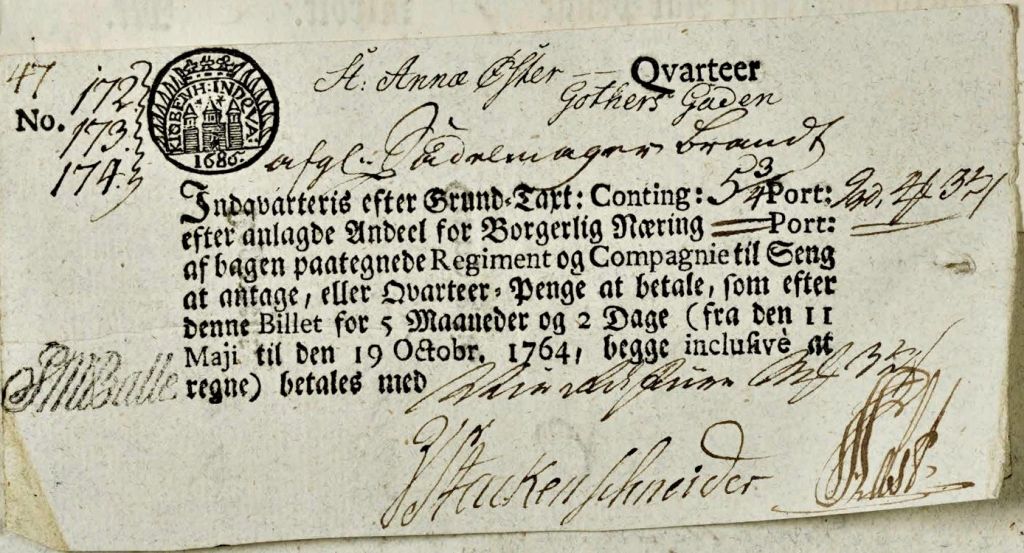 47
172
No. 173.
174.
KIØBENH: INDQVA:
1686.
St. Annæ Øster — Qvarteer
Gothers Gaden
afgl. Sadelmager Brandt
Indqvarteris efter Grund-Taxt: Conting: 5 3/4 Port:
efter anlagde Andeel for Borgerlig Næring — Port:
af bagen paategnede Regiment og Compagnie til Seng
at antage, eller Qvarteer-Penge at betale, som efter
denne Billet for 5 Maaneder og 2 Dage (fra den 11
Maji til den 19 Octobr. 1764, begge inclusivè at
regne) betales med
Stuckenschneider